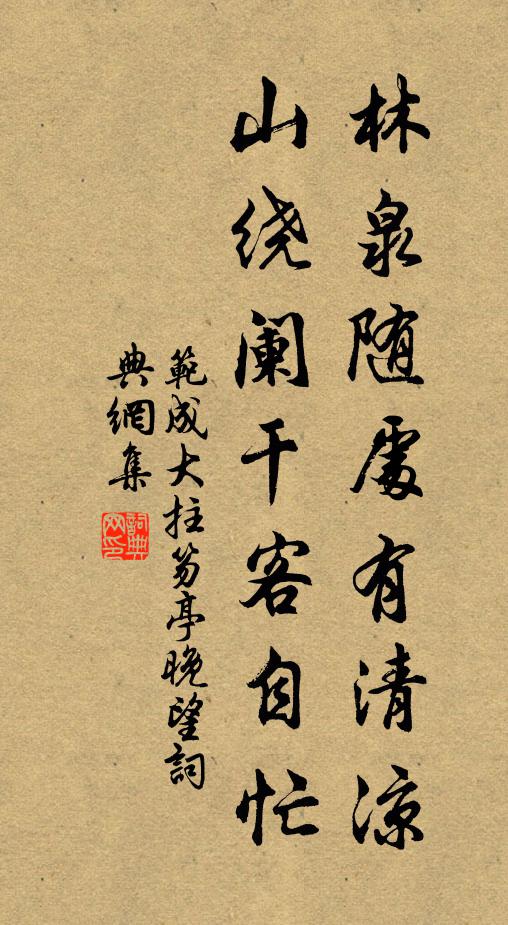 林泉随處有清涼
山绕阑干客自忙
範成大拄笏亭晚望詞
典網集
詞典網印